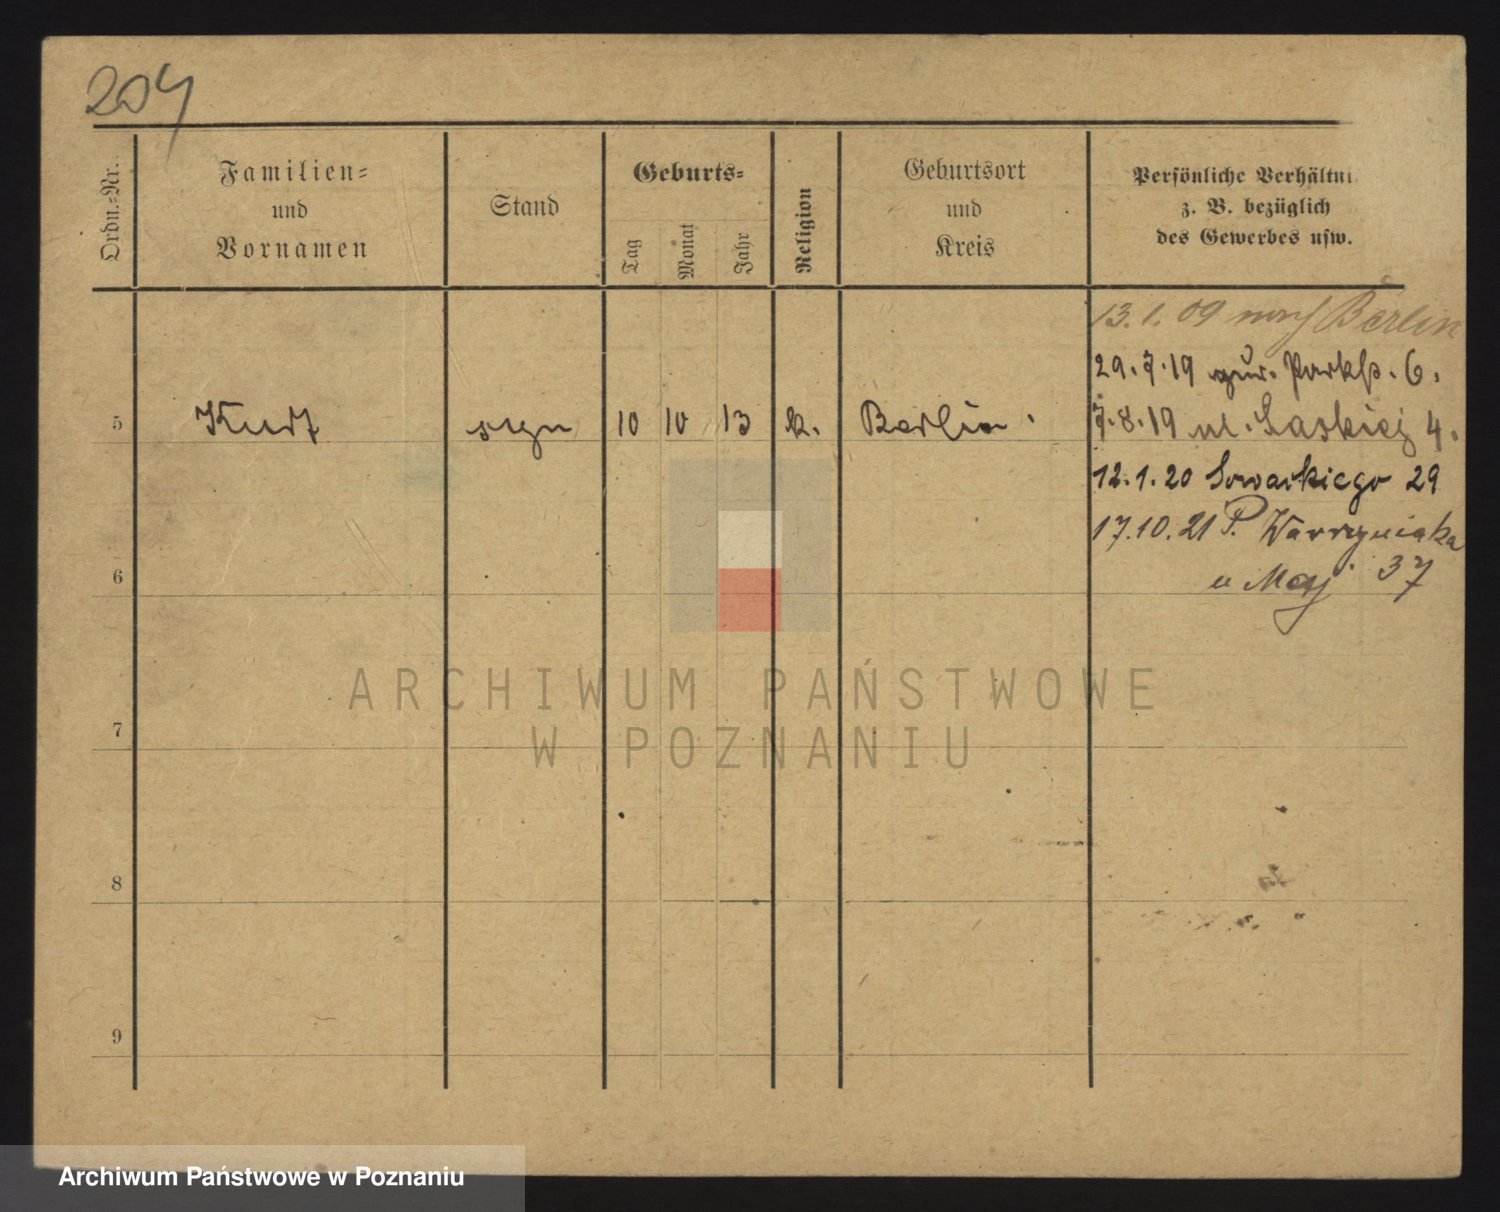 204
Ordn.-Nr.
Familien-
und
Vornamen
Stand
Geburts-
Tag
Monat
Jahr
Religion
Geburtsort
und
Kreis
Persönliche Verhältni
z. B. bezüglich
des Gewerbes usw.
13.1.09 nach Berlin
29.7.19 zur. Parkstr. 6.
5 Kurt syn 10 10 13 k. Berlin. 7.8.19 ul. Łaskiej 4.
12.1.20 Sowackiego 29
17.10.21 P. Wawrzyniaka
6
u Maj 37
7
8
9
ARCHIWUM PAŃSTWOWE
W POZNANIU
Archiwum Państwowe w Poznaniu